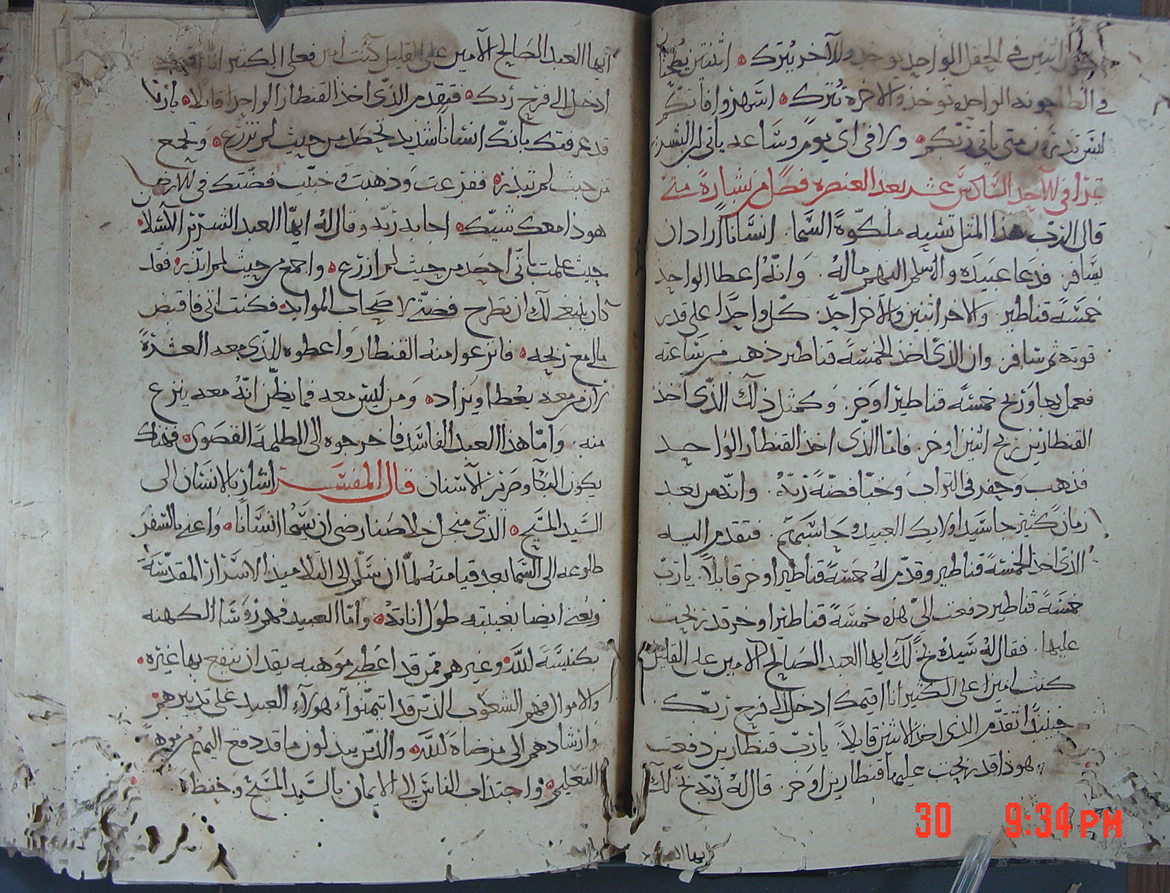 اثنين في الحقل الواحد يوخد والاخر يترك اثنتين
الواحده توخد والاخره تترك اسهروا فانكم
لستم تدرون متى ياتي ربكم ولا في اي يوم وساعه ياتي ابن البشر
تقرا في الاحد السادس عشر بعد العنصره فصل من بشارة متى
قال الرب هذا المثل تشبه ملكوة السما انسانا اراد ان
يسافر فدعا عبيده واسلم اليهم ماله وانه اعطا الواحد
خمسة قناطير والاخر اثنين والاخر واحد كل واحدا على قدر
قوته ثم سافر وان الذي اخد الخمسة قناطير ذهب من ساعته
فعمل بها وربح خمسة قناطيرا اوخر وكمثل ذلك الذي اخد
القنطارين ربح اثنين اوخر فاما الذي اخد القنطار الواحد
فذهب وحفر في التراب وخبا فضة ربه وانه من بعد
زمان كثير جا سيد اولايك العبيد وحاسبهم فتقدم اليه
الذي اخد الخمسة قناطير وقدم له خمسة قناطيرا اوخر قايلا يارب
خمسة قناطير دفعت الي هذه خمسة قناطيرا اوخر قد ربحت
عليها فقال له سيده بخ لك ايها العبد الصالح الامين على القليل
كنت امينا على الكثير انا اقيمك ادخل الى فرح ربك
حينيدا تقدم الذي اخد الاثنين قايلا يارب قنطارين دفعت
الي هودا قد ربحت عليها قنطارين اوخر قال له ربه بخ لك
ايها
ايها العبد الصالح الامين على القليل كنت امين فعلى الكثير انا اقيمك
ادخل الى فرح ربك فتقدم الذي اخد القنطار الواحد قايلا يارب انا
قد عرفتك بانك انسانا شديد تحصد من حيث لم تزرع وتجمع
من حيث لم تبذر ففزعت وذهبت وخبيت فضتك في الارض
هوذا معك شيك اجابه ربه وقال له ايها العبد الشرير الكسلان
حيث علمت اني احصد من حيث لم ازرع واجمع من حيث لم ابذر فقد
كان ينبغي لك ان تطرح فضتي لاصحاب الموايد فكنت اتي فاقبض
مالي مع ربحه فانزعوا منه القنطار واعطوه للذي معه العشرة
لان من معه يعطا ويزاد ومن ليس معه فما يظن انه معه ينزع
منه واما هذا العبد الفاسد فاخرجوه الى الظلمة القصوى فهناك
يكون البكا وصرير الاسنان قال المفسر اشار بالانسان الى
السيد المسيح الذي من اجل خلاصنا رضي ان يسما انسانا واعنى بالسفر
طلوعه الى السما بعد قيامته لما ان سلم الى التلاميذ الاسرار المقدسة
ويعني ايضا بغيبته طول اناته واما العبيد فهم روسا الكهنه
بكنيسة الله وغيرهم ممن قد اعطي موهبه يقدر ان ينفع بها غيره
والاموال فهي الشعوب الذين قد ايتمنوا هولاء العبيد على تدبيرهم
وارشادهم الى مرضاة الله والذين يبدلون ما قد دفع اليهم من
التعليم واجتذاب الناس الى الايمان بالسيد المسيح وحفظ